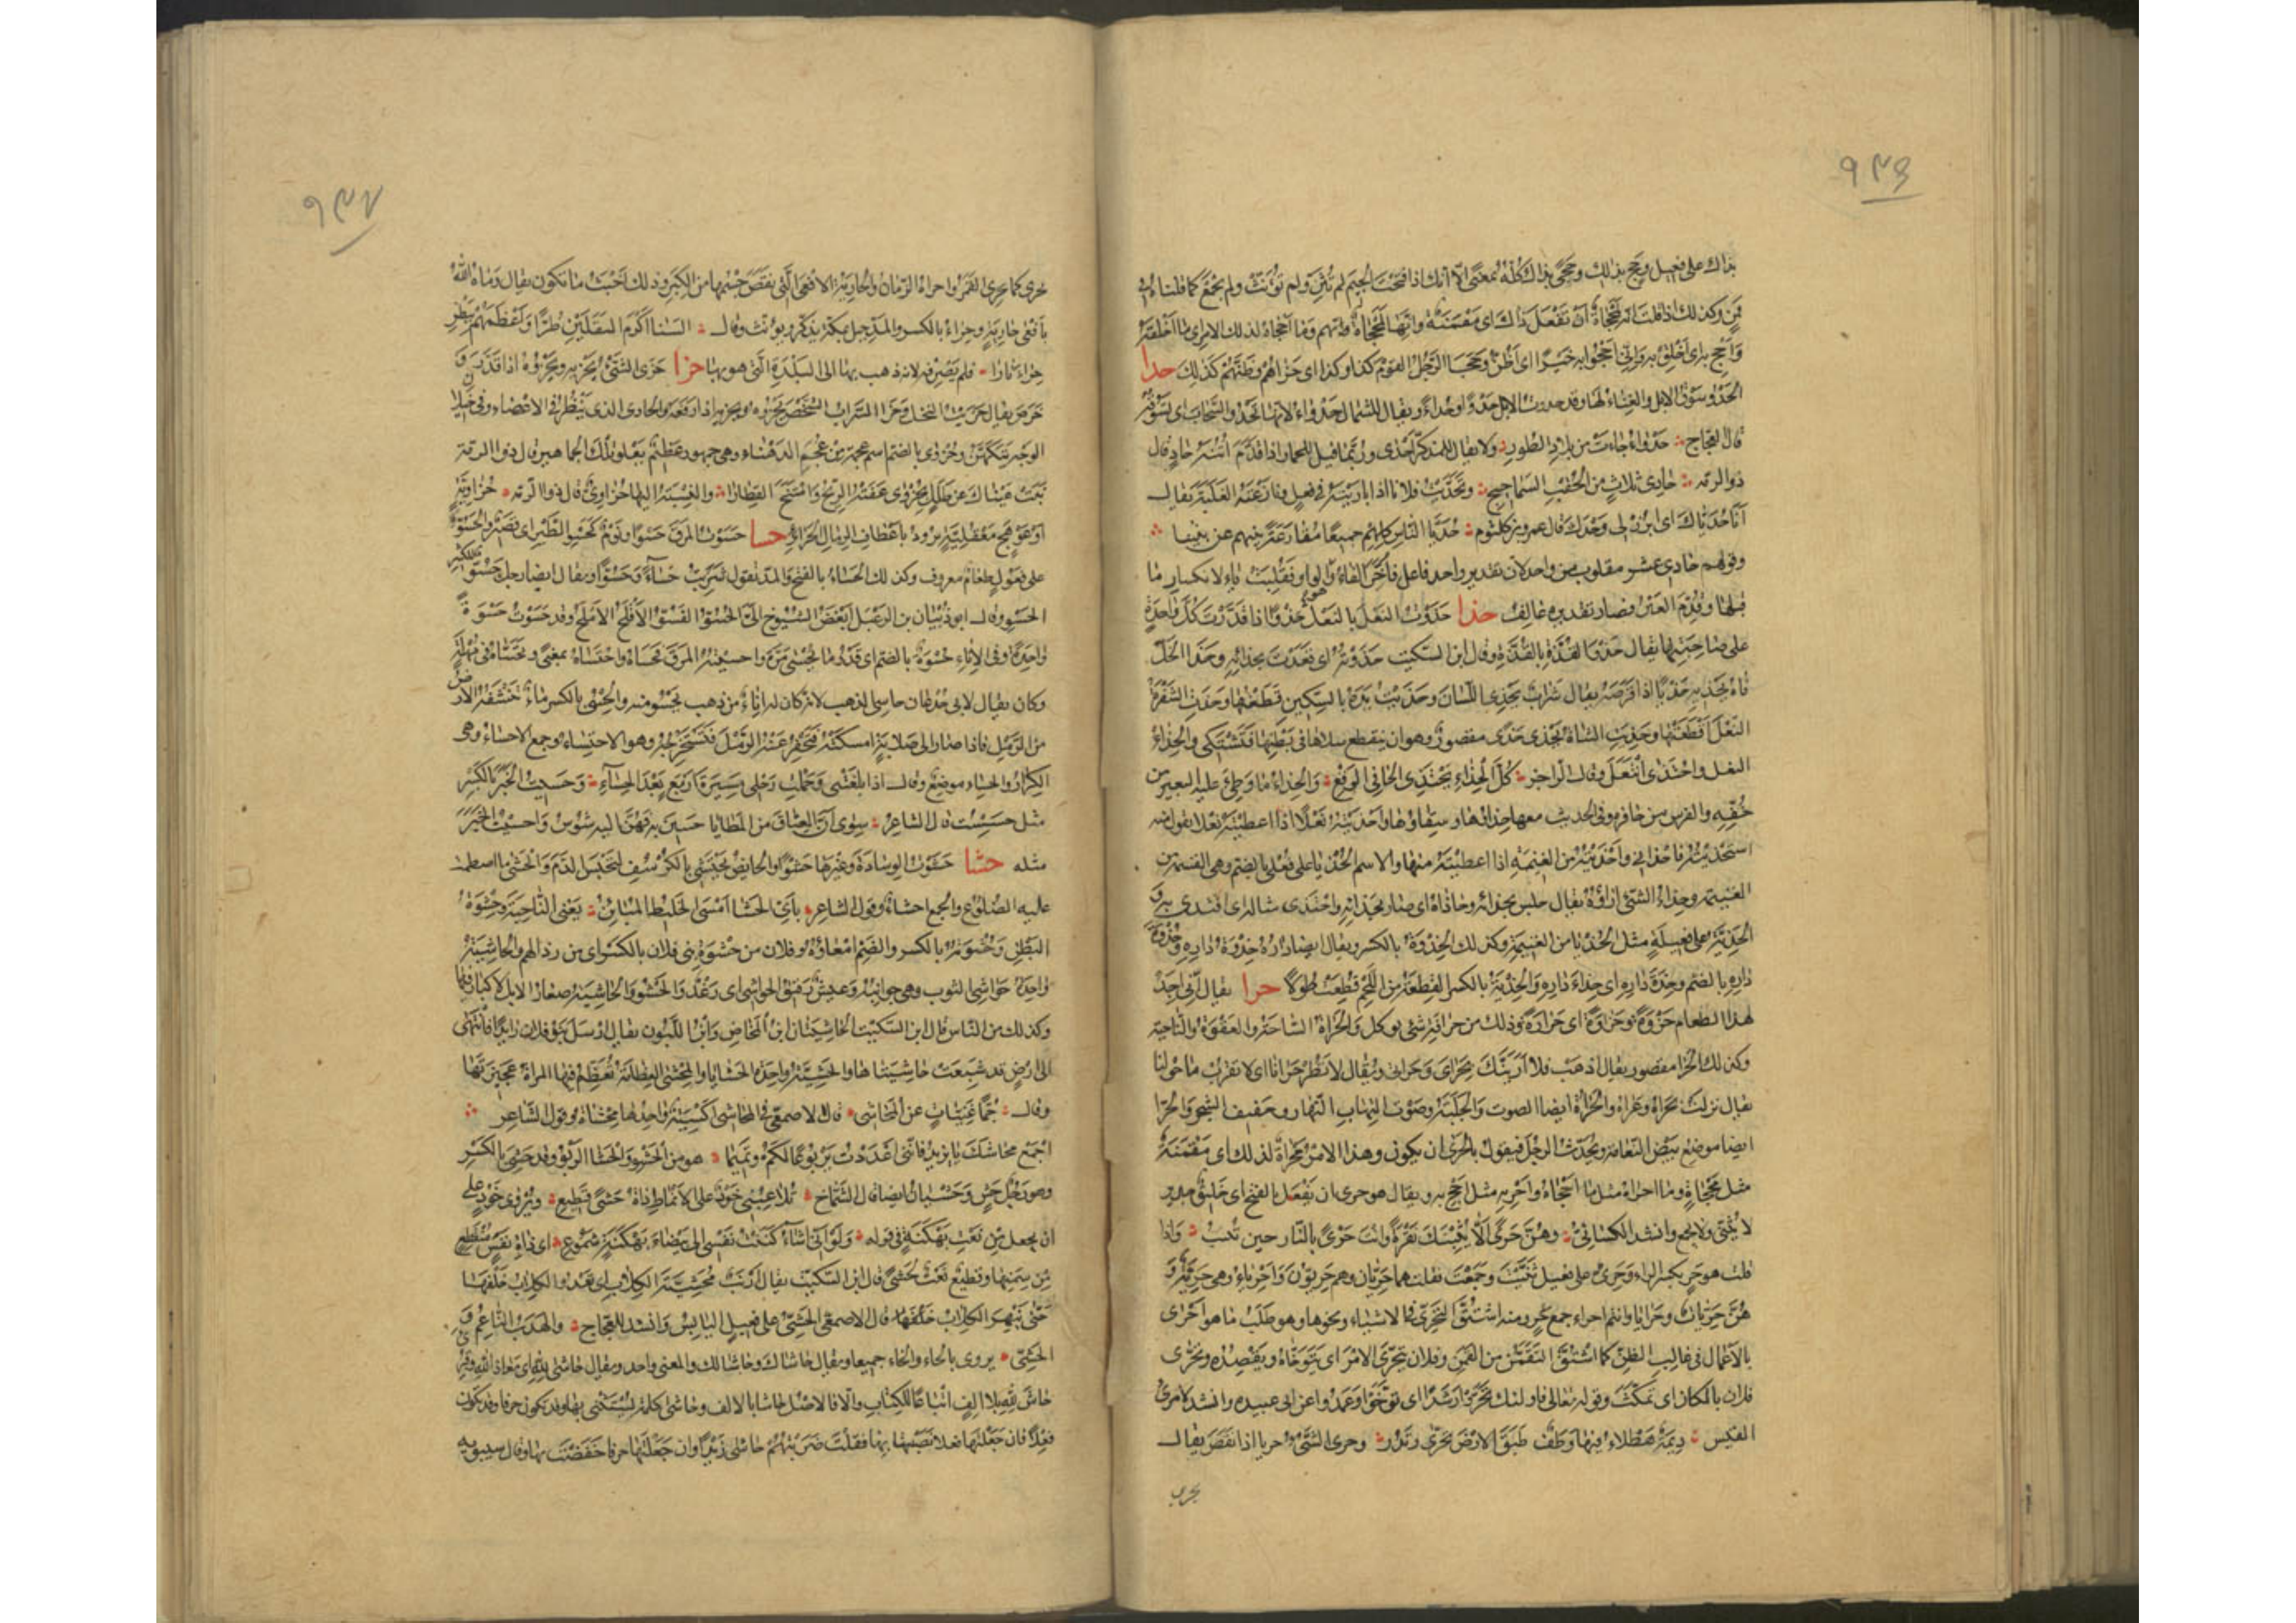 ٩٣٦
بذاك على فعيل وحج بذلك وحجى بذاك كله بمعنى الا انك اذا فتحت الجيم لم تثن ولم تؤنث ولم تجمع كما قلناه في
قمن وكذلك اذا قلت انه لمحجاة ان تفعل ذاك اى مقمنة وانها لمحجاة وانهم وما احجاه لذلك الامر اى ما اخلقه
واحج به اى اخلق به وانى احجوا به خيرا اى اظن وحجا الرجل القوم كذا وكذا اى حزاهم وظنهم كذلك حدا
الحدو سوق الابل والغناء لها وقد حدوت الابل حدوا وحداء ويقال للشمال حدواء لانها تحدو السحاب اى تسوقه
قال العجاج حدواء جاءت من بلاد الطور ولا يقال للمذكر احدى وربما قيل للحمار اذا قدم اتنه حاد قال
ذو الرمة حادى ثلاث من الحقب السماحيج وتحديت فلانا اذا باريته فى فعل ونازعته الغلبة يقال
انا حدياك اى ابرز لى وحدك قال عمرو بن كلثوم حديا الناس كلهم جميعا مقارعة بنيهم عن بنينا
وقولهم حادى عشر مقلوب من واحد لان تقدير واحد فاعل فاخر الفاء وهو الواو فقلبت ياء لانكسار ما
قبلها وقدم العين فصار تقديره عالف حذا حذوت النعل بالنعل حذوا اذا قدرت كل واحدة
على صاحبتها يقال حذو القذة بالقذة وقال ابن السكيت حذوته اى قعدت بحذائه وحذا الخل
فاه يحذيه حذيا اذا قرصه يقال شراب يحذى اللسان وحذيت يده بالسكين قطعتها وحذت الشفرة
النعل قطعتها وحذيت الشاة تحذى حذى مقصور وهو ان ينقطع سلاها فى بطنها فتشتكى والحذاء
النعل واحتذى انتعل وقال الراجز كل الحذاء يحتذى الحافى الوقع والحذاء ما وطئ عليه البعير من
خفه والفرس من حافره وفى الحديث معها حذاؤها وسقاؤها واحذيته نعلا اذا اعطيته نعلا تقول منه
استحذيته فاحذانى واحذيته من الغنيمة اذا اعطيته منها والاسم الحذيا على فعلى بالضم وهى القسمة من
الغنيمة وحذاء الشئ ازاؤه يقال جلس بحذائه وحاذاه اى صار بحذائه واحتذى مثاله اى اقتدى به و
الحذية على فعيلة مثل الحذيا من الغنيمة وكذلك الحذوة بالكسر ويقال ايضا داره حذوة داره وحذوة
داره بالضم وحذة داره اى حذاء داره والحذية بالكسر القطعة من اللحم قطعت طولا حرا يقال انى اجد
لهذا الطعام حزوة وحراوة اى حرارة وذلك من حرافة شئ يوكل والحراة الساحة والعقوة والناحية
وكذلك الحرا مقصور يقال اذهب فلا ارينك بحراى وحراتى ويقال لا تطر حرانا اى لا تقرب ما حولنا
يقال نزلت بحراه وعراه والحراة ايضا الصوت والجلبة وصوت التهاب النار وحفيف الشجر والحرا
ايضا موضع بيض النعامة ويحدث الرجل فيقول بالحرى ان يكون وهذا الامر محراة لذلك اى مقمنة
مثل محجاة وما احراه مثل ما احجاه واحر به مثل احج به ويقال هو حرى ان يفعل بالفتح اى خليق جدير
لا يثنى ولا يجمع وانشد الكسائى وهن حرى الا يثبنك نقرة وانت حرى بالنار حين تثيب واذا
قلت هو حر بكسر الراء وحرى على فعيل ثنيت وجمعت فقلت هما حريان وهم حريون واحرياء وهى حرية و
هن حريات وحرايا وانتم احراء جمع حر ومنه اشتق التحرى فى الاشياء ونحوها وهو طلب ما هو احرى
بالاعمال فى غالب الظن كما اشتق التقمن من القمن وفلان يتحرى الامر اى يتوخاه ويقصده وتحرى
فلان بالمكان اى تمكث وقوله تعالى فاولئك تحروا رشدا اى توخوا وعمدوا عن ابى عبيده وانشد لامرئ
القيس ديمة هطلاء فيها وطف طبق الارض تحرى وتدر وحرى الشئ حريا اذا نقص يقال
يحرى
٩٣٧
يحرى كما يحرى القمر واحراه الزمان والحارية الافعى التى نقص جسمها من الكبر وذلك اخبث ما تكون يقال رماه الله
بافعى حارية وحراء بالكسر والمد جبل بمكة يذكر ويؤنث وقال السنا اكرم الثقلين طرا واعظمهم ببطن
حراء نارا فلم يصرفه لانه ذهب بها الى البلدة التى هو بها حزا حزى الشئ يحزيه ويحزوه اذا قدر و
خرص يقال حزيت النخل وحزا السراب الشخص يحزوه ويحزيه اذا رفعه والحازى الذى ينظر فى الاعضاء وفى خيلان
الوجه يتكهن وحزوى بالضم اسم عجمة من عجم الدهناء وهى جمهور عظيم يعلو تلك الجماهير قال ذو الرمة
نبت عيناك عن طلل بحزوى عفته الريح وامتنح القطارا والنسبة اليها حزاوى قال ذو الرمة حزاوية
او عوهج معقلية ترود باعطاف الرمال الحزاور حسا حسوت المرق حسوا ويوم كحسو الطير اى قصير والحسو
على فعول طعام معروف وكذلك الحساء بالفتح والمد تقول شربت حساء وحسوا ويقال ايضا رجل حسو للكثير
الحسو وقال ابو ذبيان بن الرعبل ابغض الشيوخ الى الحسو الفسو الاقلح الاملح وقد حسوت حسوة
واحدة وفى الاناء حسوة بالضم اى قدر ما يحسى مرة واحسيته المرق فحساه واحتساه بمعنى وتحساه فى مهلة
وكان يقال لابى جدعان حاسى الذهب لانه كان له اناء من ذهب يحسو منه والحسى بالكسر ما تنشفه الارض
من الرمل فاذا صار الى صلابة امسكته فتحفر عنه الرمل فتستخرجه وهو الاحتساء وجمع الاحساء وهى
الكرار والحساء موضع وقال اذا بلغتنى وحملت رحلى مسيرة اربع بعد الحساء وحسيت الخبر بالكسر
مثل حسست قال الشاعر سوى ان العتاق من المطايا حسين به فهن اليه شوس واحسيت الخبر
مثله حشا حشوت الوسادة وغيرها حشوا والحائض تحتشى بالكرسف لتحبس الدم والحشى ما اضطمت
عليه الضلوع والجمع احشاء وقول الشاعر باى الحشا امسى الخليط المباين يعنى الناحية وحشوة
البطن وحشوته بالكسر والضم امعاؤه وفلان من حشوة بنى فلان بالكسر اى من رذالهم والحاشية
واحدة حواشى الثوب وهى جوانبه وعيش رقيق الحواشى اى رغد والحشو والحاشية صغار الابل لا كبار فيها
وكذلك من الناس قال ابن السكيت الحاشيتان ابن المخاض وابن اللبون يقال ارسل بنو فلان رائدا فانتهى
الى ارض قد شبعت حاشيتاها والحشية واحدة الحشايا والمحشى العظامة تعظم فيها المراة عجيزتها
وقال جما غنيات عن المحاشى قال الاصمعى المحاشى اكسية واحدها محشاة وقول الشاعر
اجمع محاشك يا يزيد فاننى اعددت يربوعا لكم وتميما هو من الحشو والحشا الربو وقد حشى بالكسر
وهو رجل حش وحشيان ايضا قال الشماخ تلاعبنى اذا ما شئت خود على الانماط ذات حشى قطيع ويروى خود على
ان يجعل من نعت بهكنة فى قوله ولو انى اشاء كننت نفسى الى بيضاء بهكنة شموع اى ذات نفس منقطع
من سمنها وقطيع نعت لحشى قال ابن السكيت يقال ارنب محشية الكلاب اى تعدو الكلاب خلفها
حتى تنبهر الكلاب خلفها قال الاصمعى الحشى على فعيل اليابس وانشد للعجاج والهدب الناعم و
الحشى يروى بالحاء والخاء جميعا ويقال حاشاك وحاشا لك والمعنى واحد ويقال حاشى لله اى معاذ الله وقرئ
حاش لله بلا الف اتباعا للكتاب والا فالاصل حاشا بالالف وحاشى كلمة يستثنى بها وقد تكون حرفا وقد تكون
فعلا فان جعلتها فعلا نصبت بها فقلت ضربتهم حاشى زيدا وان جعلتها حرفا خفضت بها وقال سيبويه